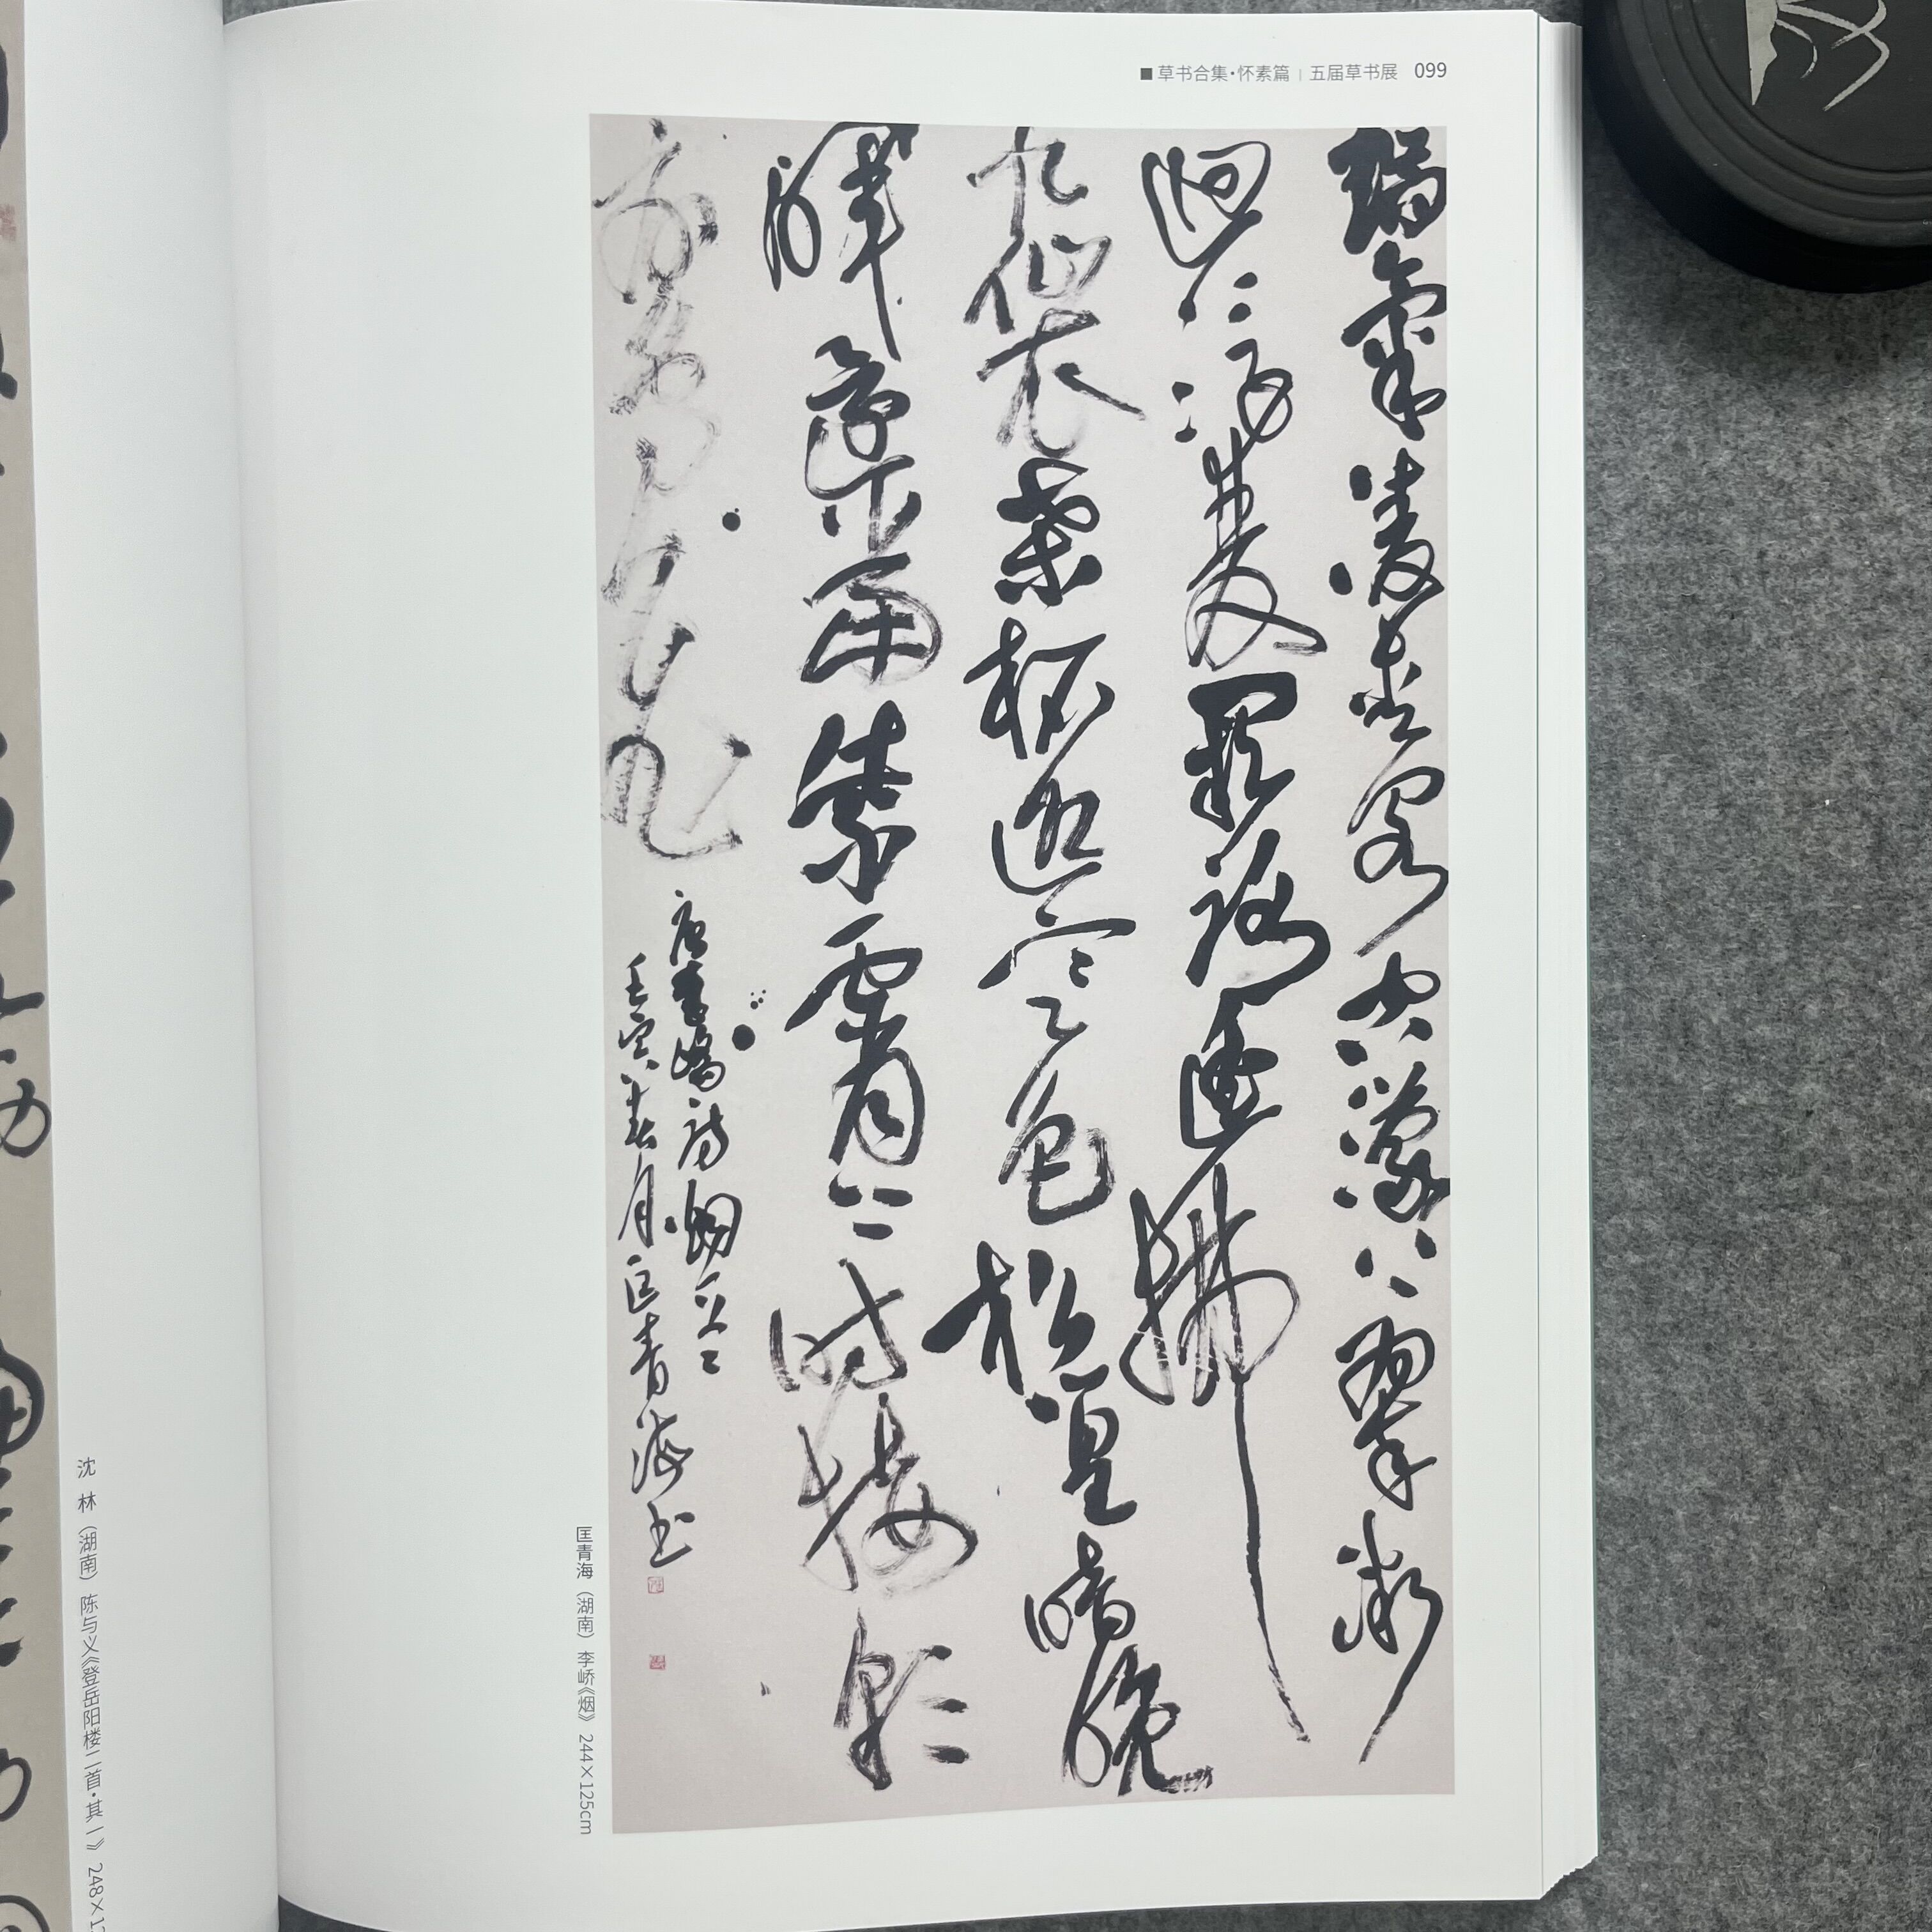 ■草书合集·怀素篇 | 五届草书展 099
瑞氣凌青閣空濛上翠微
迥浮雙闕路遥拂
九仙衣桑柘迎寒色松篁暗晚
暉還當紫霄上時接彩
鸞飛
唐李嶠詩烟一首
壬寅春月匡青海书
匡青海（湖南） 李峤《烟》 244×125cm
沈 林（湖南） 陈与义《登岳阳楼二首·其一》 248×1